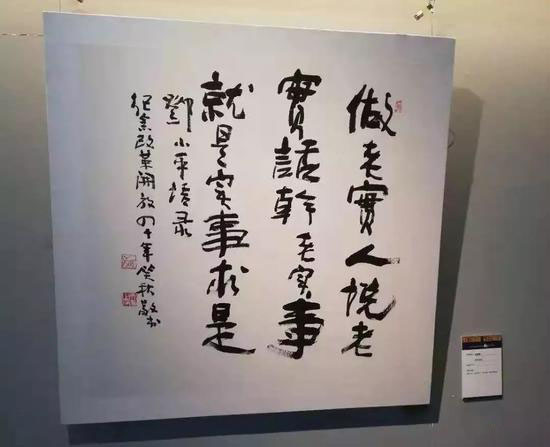 做老實人説老
實話幹老实事
就是实事求是
鄧小平语录
纪念改革開放四十年笑秋敬书